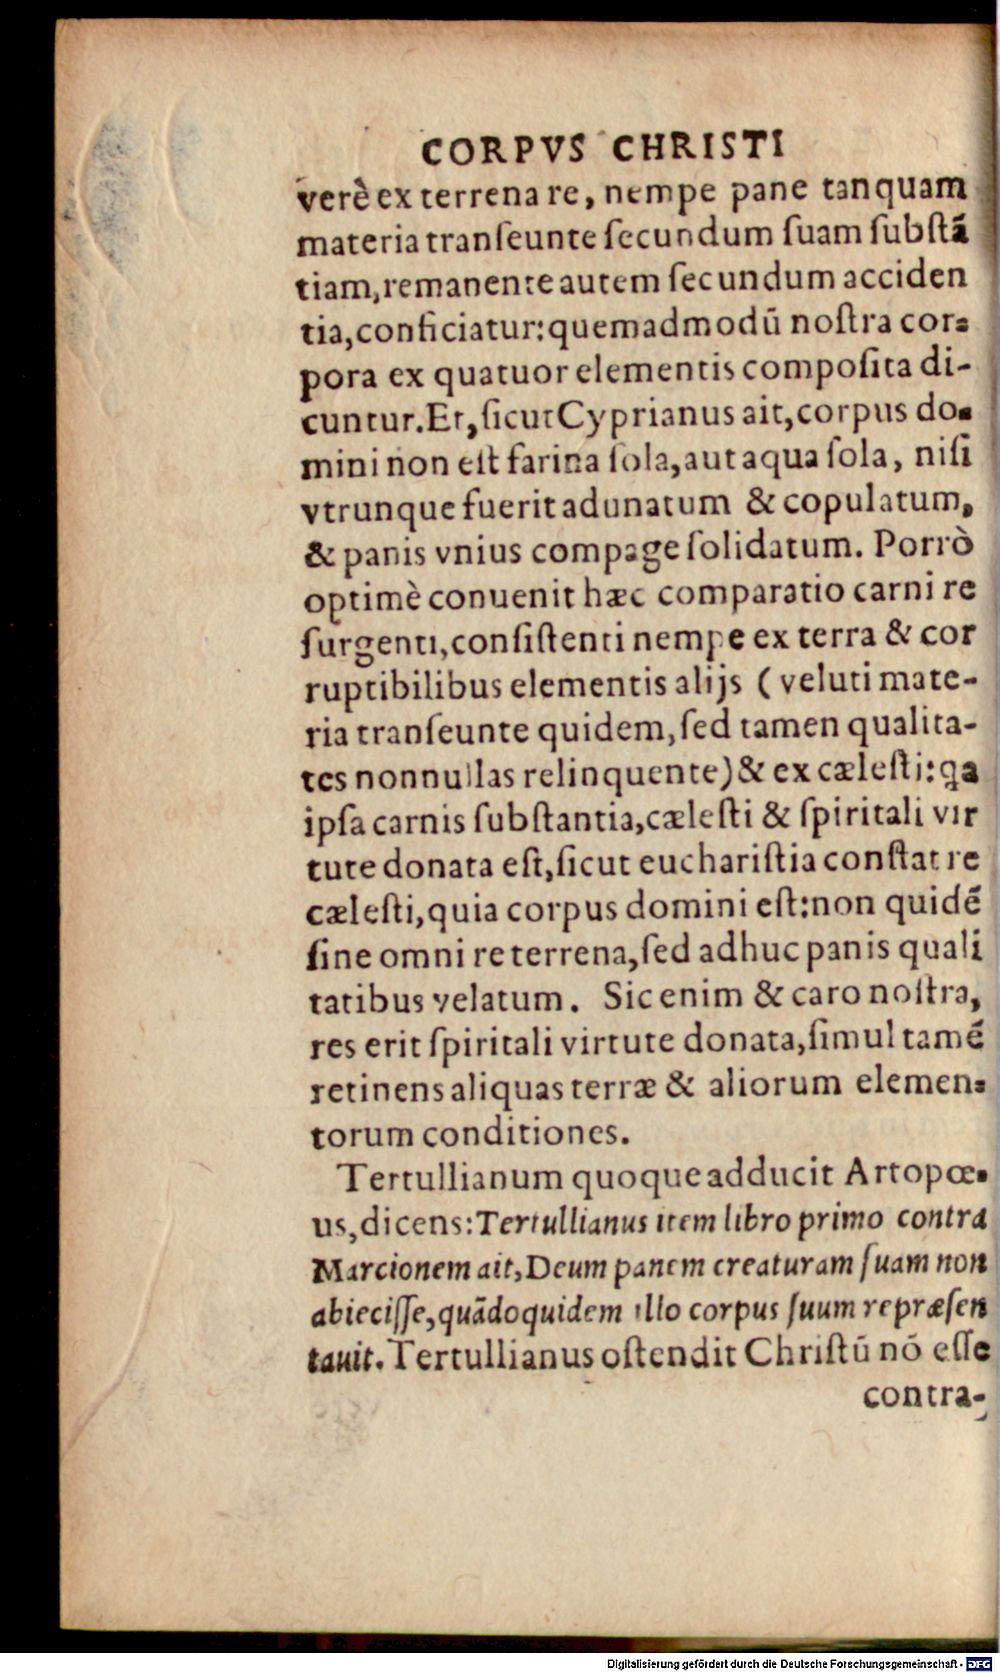 CORPVS CHRISTI
verè ex terrena re, nempe pane tanquam
materia tranſeunte ſecundum ſuam ſubſtā
tiam, remanente autem ſecundum acciden
tia, conficiatur: quemadmodū noſtra cor-
pora ex quatuor elementis compoſita di-
cuntur. Et, ſicut Cyprianus ait, corpus do-
mini non eſt farina ſola, aut aqua ſola, niſi
vtrunque fuerit adunatum & copulatum,
& panis vnius compage ſolidatum. Porrò
optimè conuenit hæc comparatio carni re
ſurgenti, conſiſtenti nempe ex terra & cor
ruptibilibus elementis alijs (veluti mate-
ria tranſeunte quidem, ſed tamen qualita-
tes nonnullas relinquente) & ex cæleſti: qa
ipſa carnis ſubſtantia, cæleſti & ſpiritali vir
tute donata eſt, ſicut euchariſtia conſtat re
cæleſti, quia corpus domini eſt: non quidē
ſine omni re terrena, ſed adhuc panis quali
tatibus velatum. Sic enim & caro noſtra,
res erit ſpiritali virtute donata, ſimul tamē
retinens aliquas terræ & aliorum elemen-
torum conditiones.
Tertullianum quoque adducit Artopœ-
us, dicens: Tertullianus item libro primo contra
Marcionem ait, Deum panem creaturam ſuam non
abieciſſe, quādoquidem illo corpus ſuum repræſen
tauit. Tertullianus oſtendit Chriſtū nō eſſe
contra-
Digitalisierung gefördert durch die Deutsche Forschungsgemeinschaft - DFG